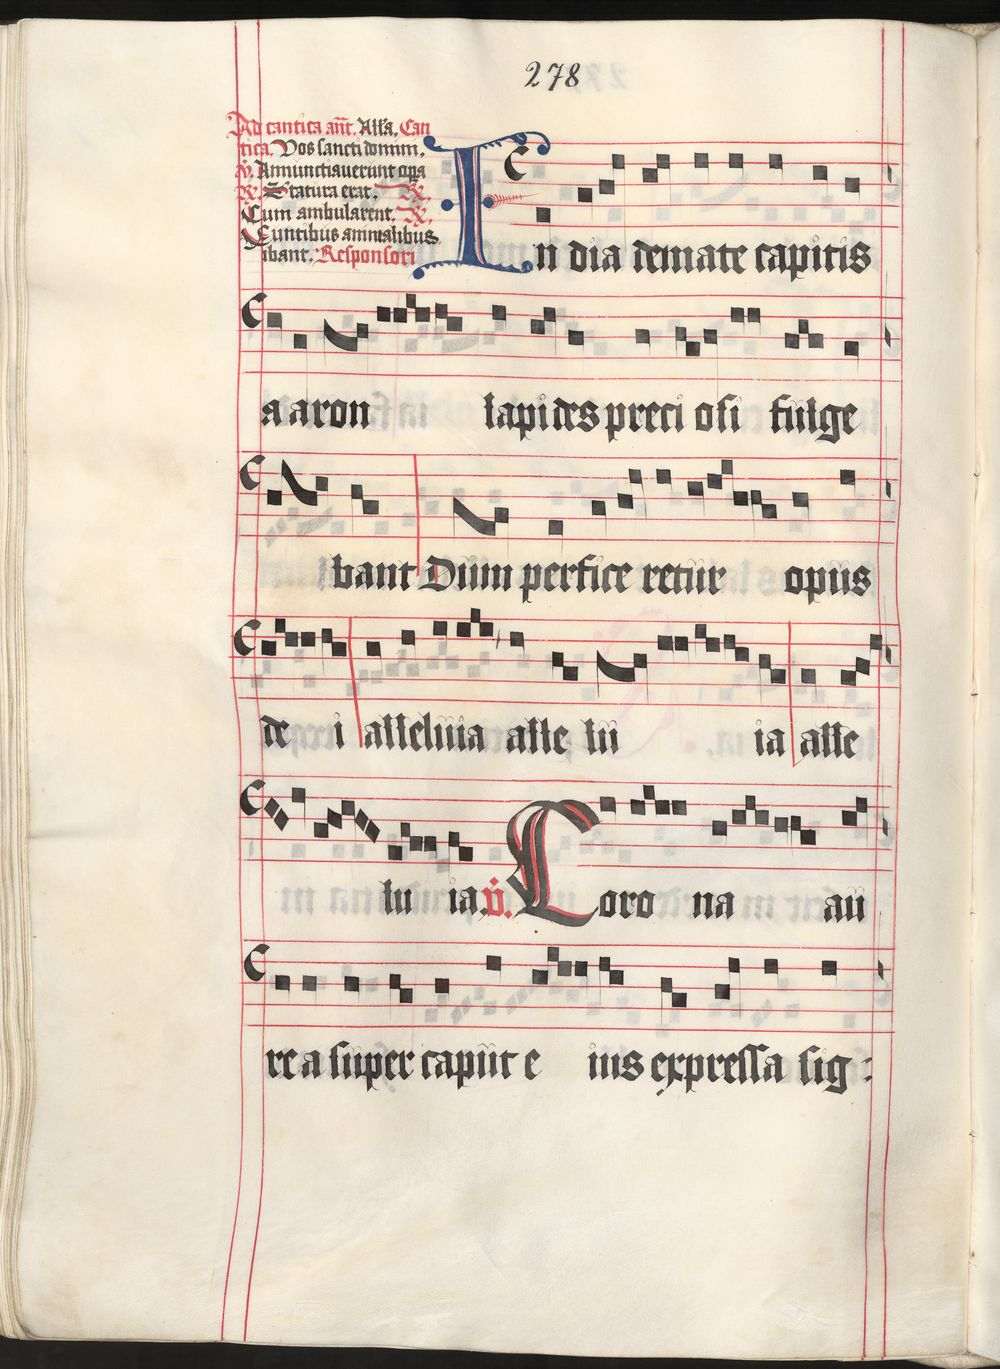 278
Ad cantica añt. Alla. Can
tica. Vos sancti domini.
v. Annunctiauerunt opa
R. Statura erat. R.
Cum ambularent. R.
Euntibus animalibus
ibant. Responsori
In dia demate capitis
a aron lapi des preci osi fulge
bant Dum perfice retur opus
de i alleluia alle lu ia alle
lu ia. v. Coro na au
re a super caput e ius expressa sig :